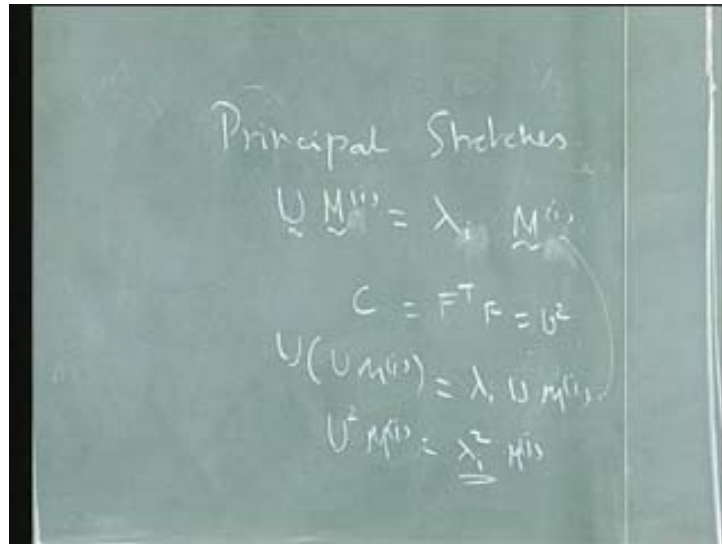 Principal Stretches
U M⁽ⁱ⁾ = λᵢ M⁽ⁱ⁾
C = Fᵀ F = U²
U(U M⁽ⁱ⁾) = λᵢ U M⁽ⁱ⁾
U² M⁽ⁱ⁾ = λᵢ² M⁽ⁱ⁾